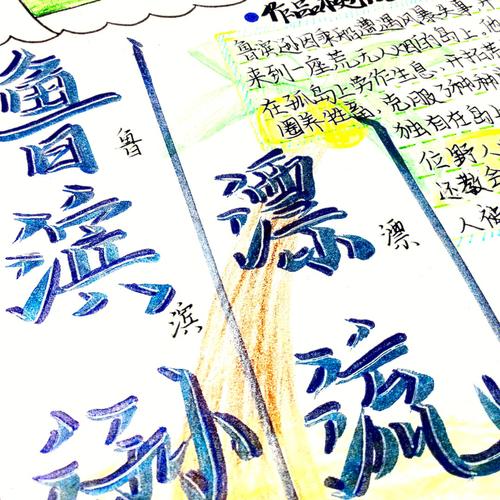 作品
鲁滨逊因乘船遭遇风暴失事
来到一座荒无人烟的岛上
在孤岛上劳作生息
圈养牲畜 克服了种种
独自在岛
位野人
还教会
鲁
滨
逊
漂
流
鲁
滨
漂